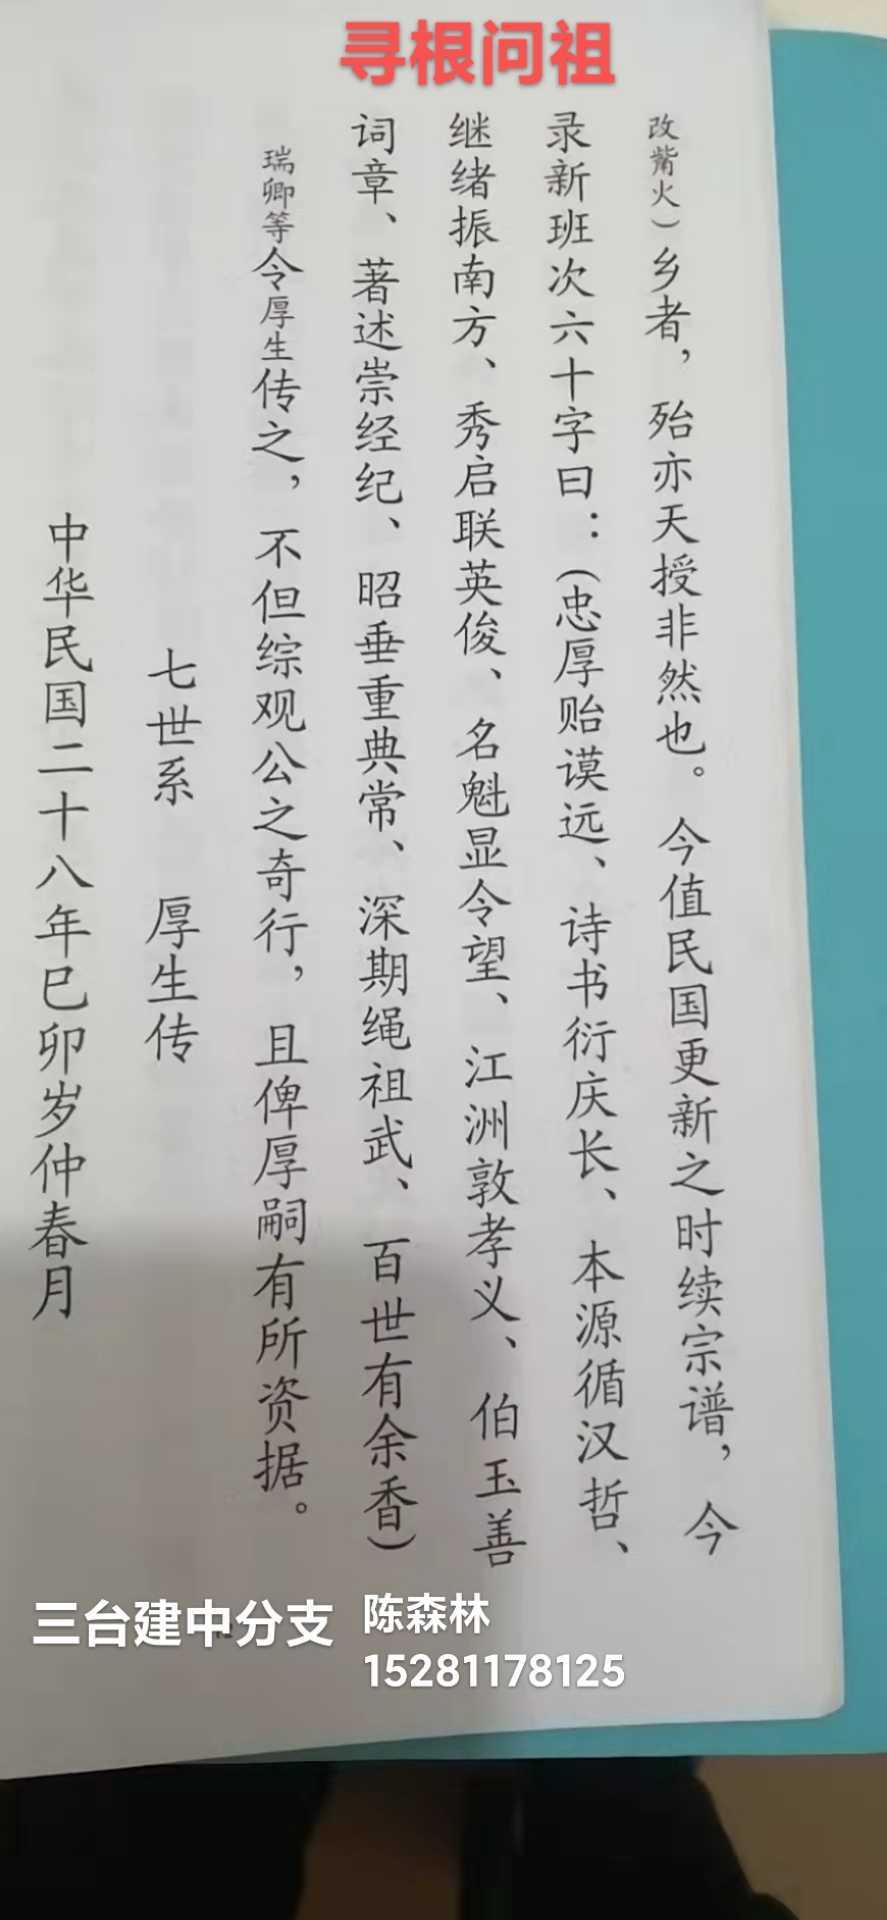 寻根问祖
改觜火）乡者，殆亦天授非然也。今值民国更新之时续宗谱，今
录新班次六十字曰：（忠厚贻谟远、诗书衍庆长、本源循汉哲、
继绪振南方、秀启联英俊、名魁显令望、江洲敦孝义、伯玉善
词章、著述崇经纪、昭垂重典常、深期绳祖武、百世有余香）
瑞卿等令厚生传之，不但综观公之奇行，且俾厚嗣有所资据。
七世系 厚生传
中华民国二十八年巳卯岁仲春月
三台建中分支 陈森林
15281178125